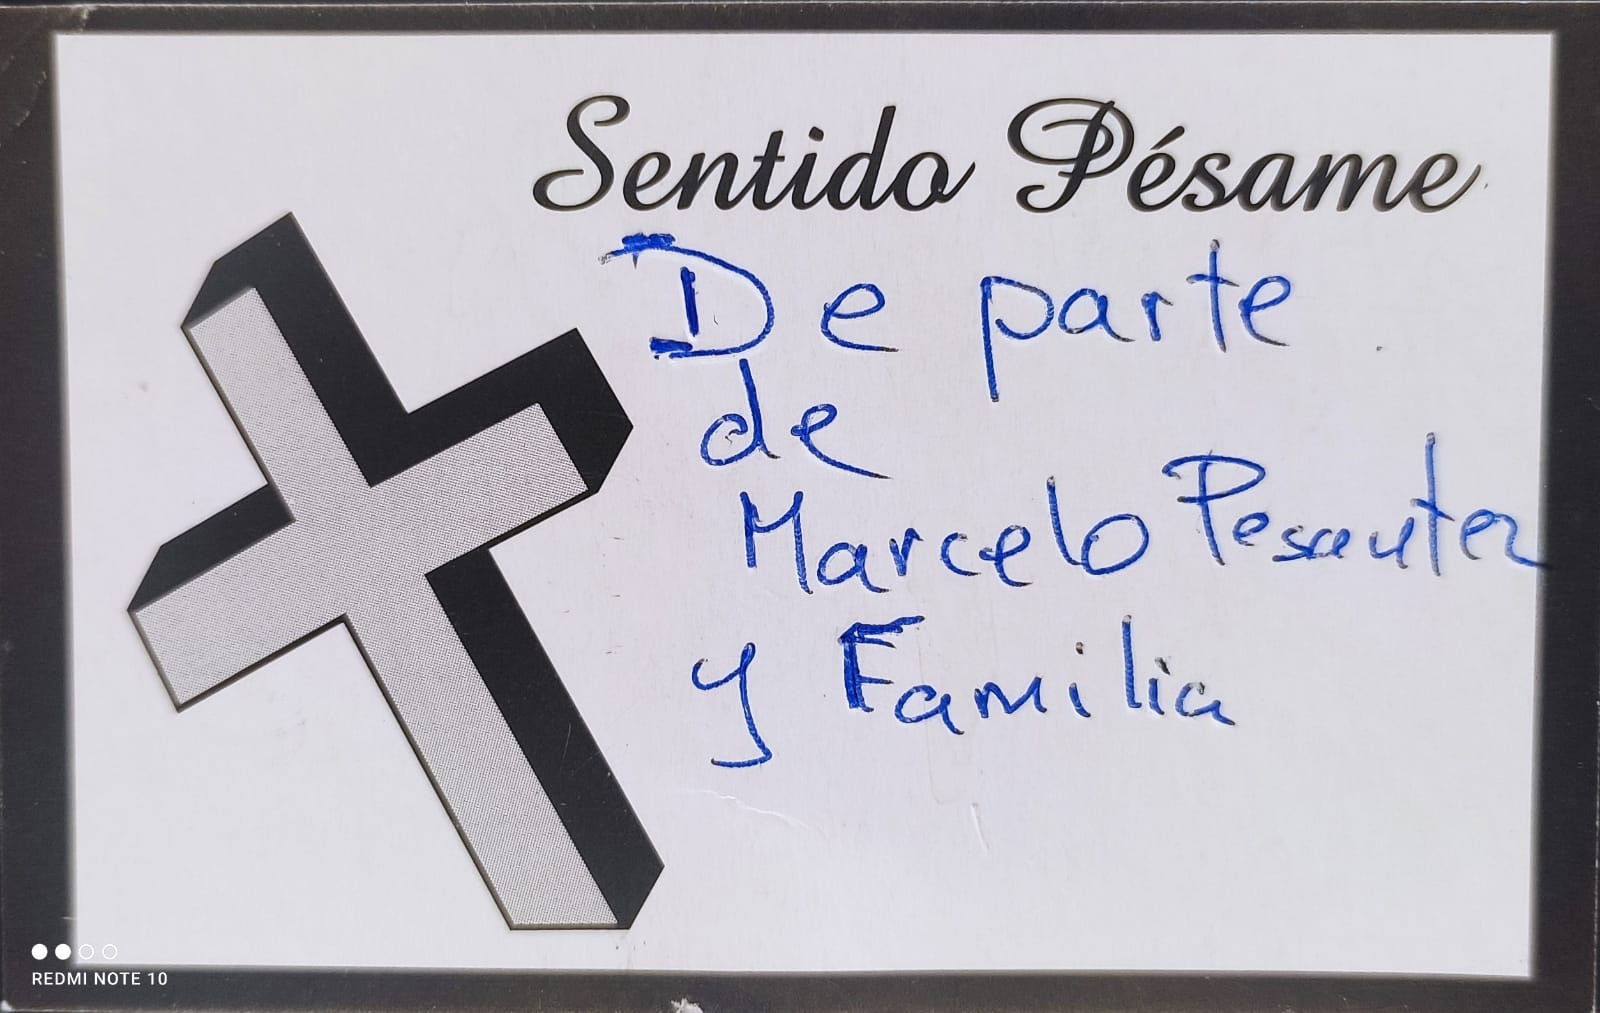 Sentido Pésame
De parte
de
Marcelo Pesantez
y Familia
REDMI NOTE 10